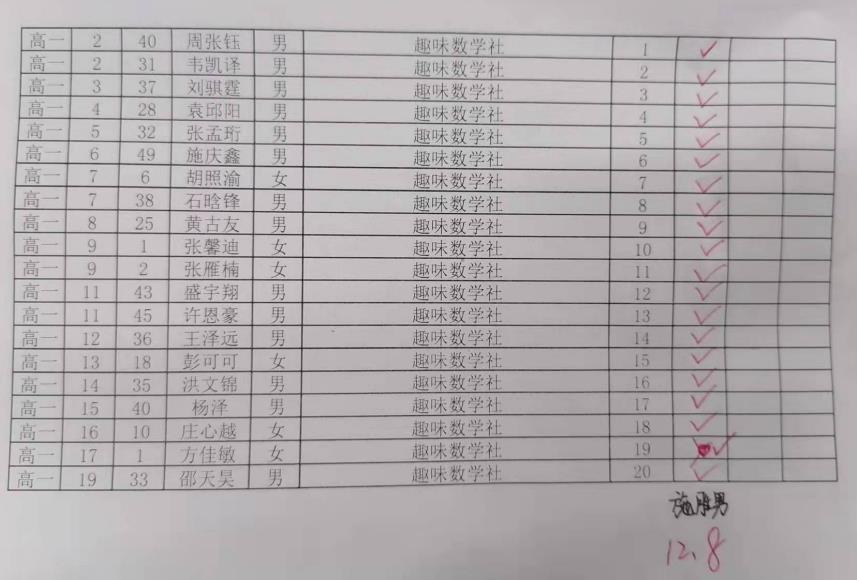 高一 2 40 周张钰 男 趣味数学社 1 ✓
高一 2 31 韦凯译 男 趣味数学社 2 ✓
高一 3 37 刘骐霆 男 趣味数学社 3 ✓
高一 4 28 袁邱阳 男 趣味数学社 4 ✓
高一 5 32 张孟珩 男 趣味数学社 5 ✓
高一 6 49 施庆鑫 男 趣味数学社 6 ✓
高一 7 6 胡照渝 女 趣味数学社 7 ✓
高一 7 38 石晗锋 男 趣味数学社 8 ✓
高一 8 25 黄古友 男 趣味数学社 9 ✓
高一 9 1 张馨迪 女 趣味数学社 10 ✓
高一 9 2 张雁楠 女 趣味数学社 11 ✓
高一 11 43 盛宇翔 男 趣味数学社 12 ✓
高一 11 45 许恩豪 男 趣味数学社 13 ✓
高一 12 36 王泽远 男 趣味数学社 14 ✓
高一 13 18 彭可可 女 趣味数学社 15 ✓
高一 14 35 洪文锦 男 趣味数学社 16 ✓
高一 15 40 杨泽 男 趣味数学社 17 ✓
高一 16 10 庄心越 女 趣味数学社 18 ✓
高一 17 1 方佳敏 女 趣味数学社 19 ✓
高一 19 33 邵天昊 男 趣味数学社 20 ✓
施胜男
12.8